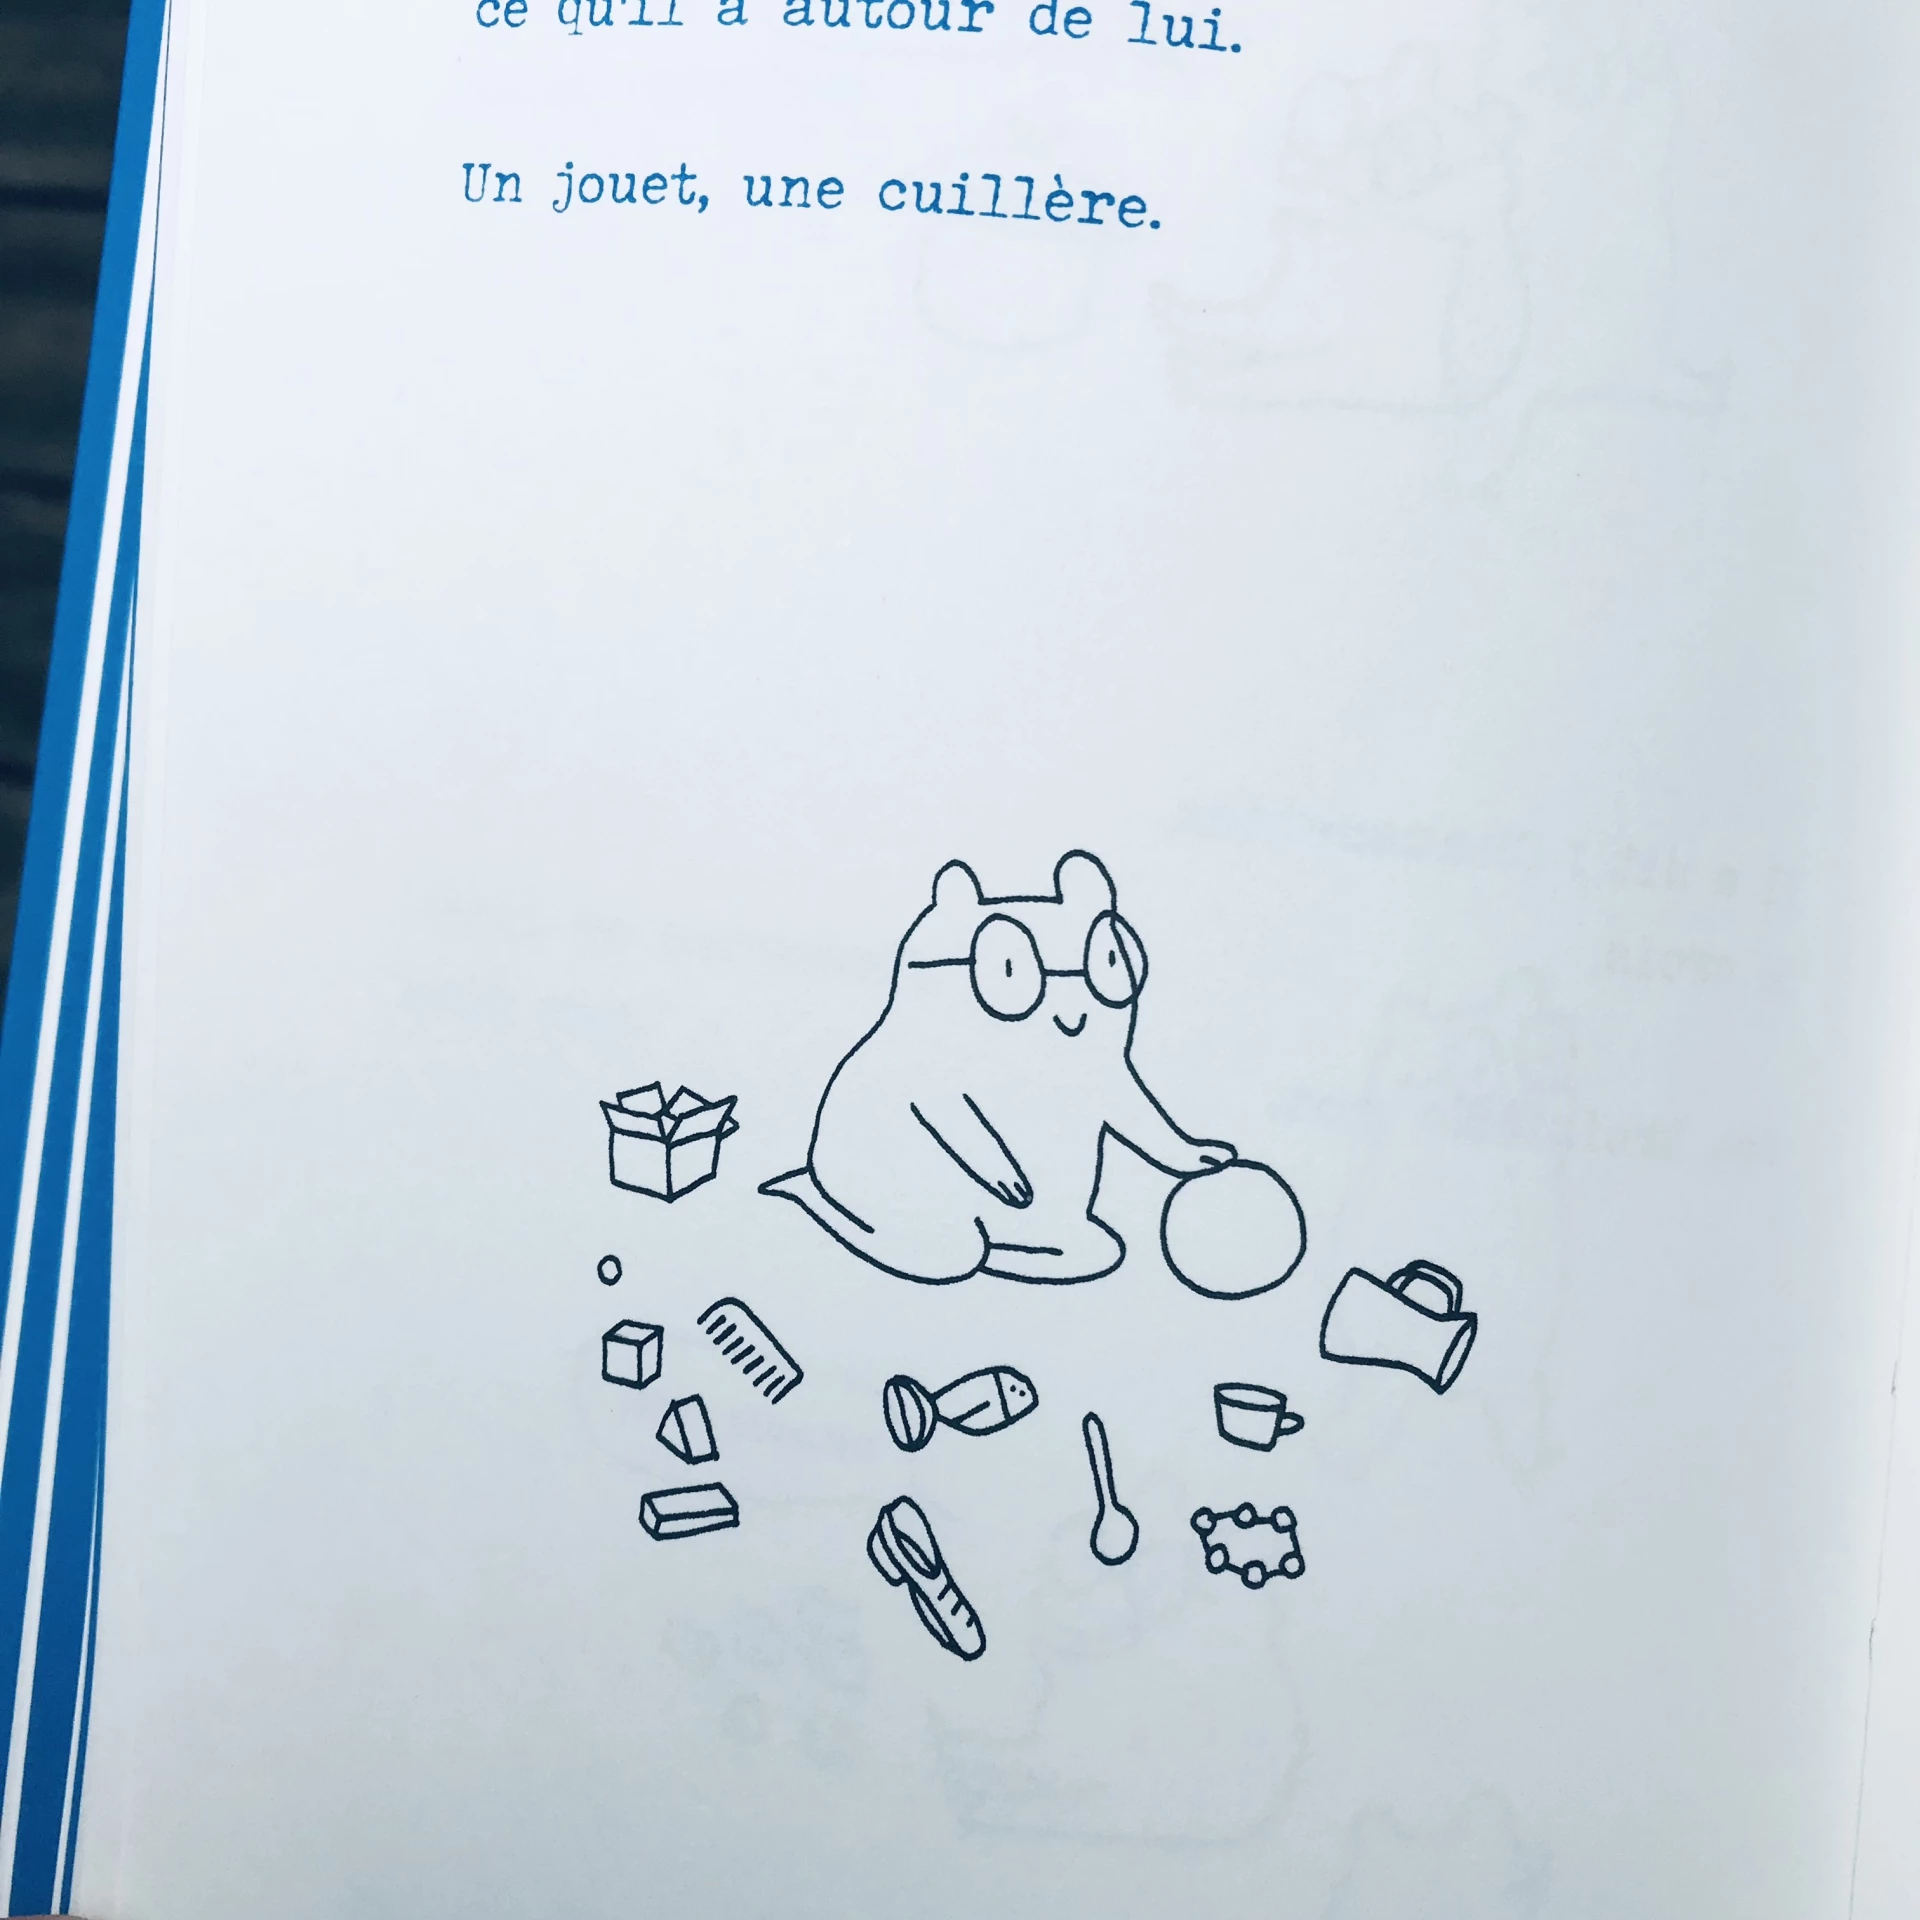 ce qu'il a autour de lui.
Un jouet, une cuillère.